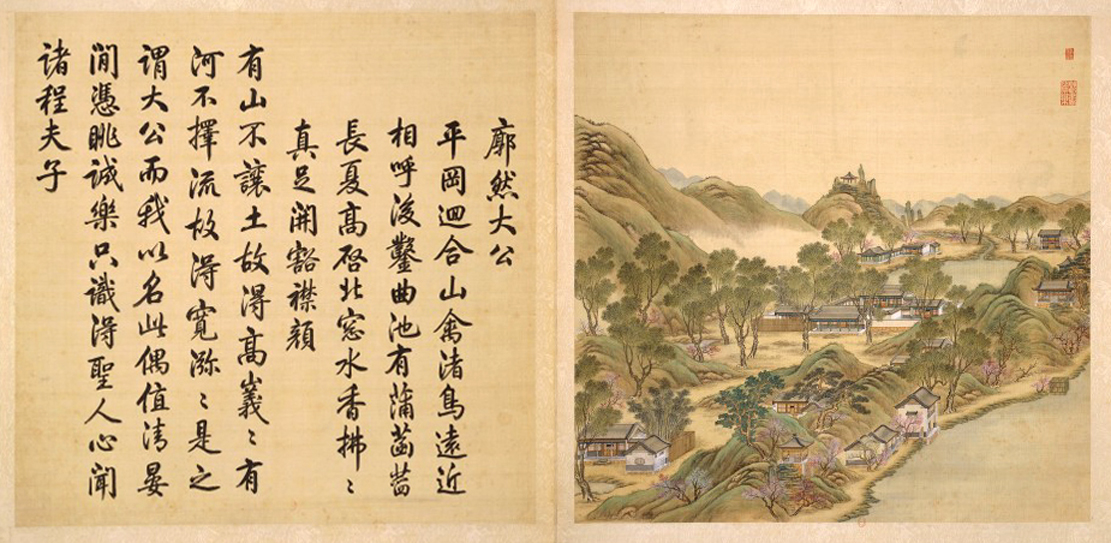 廓然大公
平岡迴合山禽渚鳥遠近
相呼後鑿曲池有蒲菡萏
長夏高啓北窓水香拂〻
真足開豁襟顏
有山不讓土故得高嶷〻有
河不擇流故得寬瀰〻是之
謂大公而我以名此偶值清晏
閒憑眺誠樂只識得聖人心聞
諸程夫子